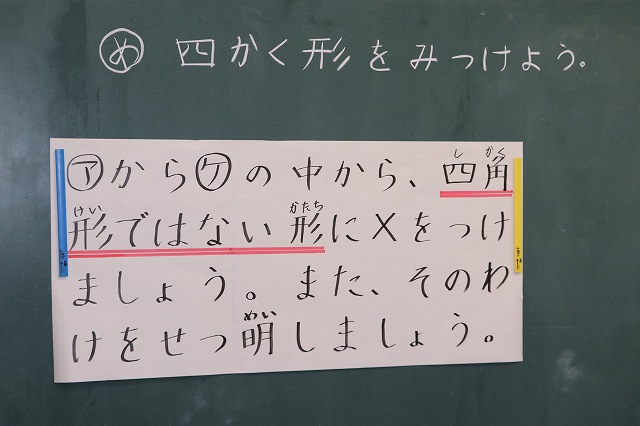 め 四かく形をみつけよう。
アからケの中から、四角
形ではない形にXをつけ
ましょう。また、そのわ
けをせつ明しましょう。